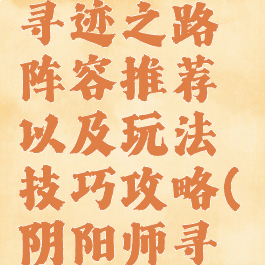 寻迹之路
阵容推荐
以及玩法
技巧攻略(
阴阳师寻